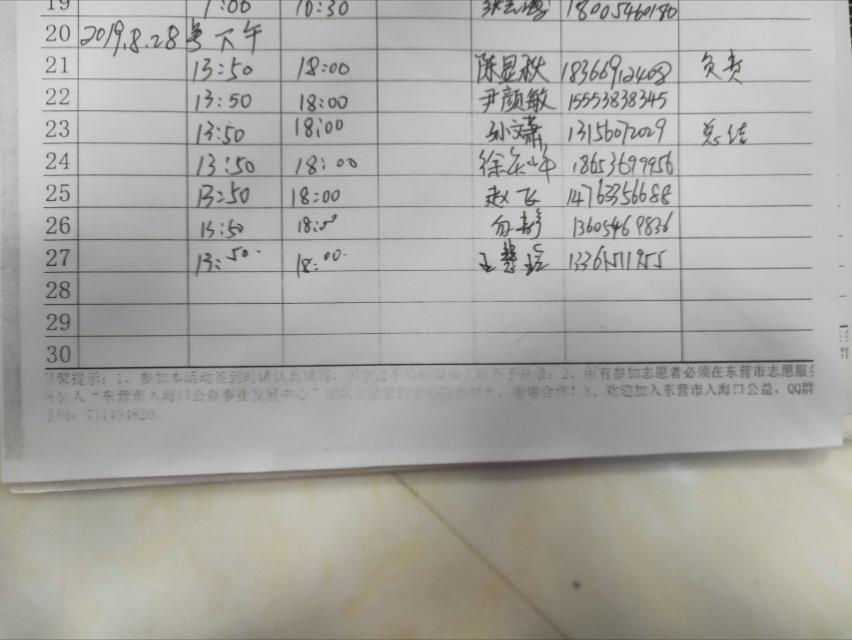 19 1:00 10:30 18005460180
20 2019.8.28号下午
21 13:50 18:00 陈显秋 18366912408 负责
22 13:50 18:00 尹颜敏 15553838345
23 13:50 18:00 孙文萧 13156072029 总结
24 13:50 18:00 徐庆峰 18653699956
25 13:50 18:00 赵飞 14763356688
26 13:50 18:50 13605469836
27 13:50 18:00 王慧 13361511955
28
29
30
温馨提示：1、参加本活动签到时请认真填写，2、所有参加志愿者必须在东营市志愿服务
加入“东营市入海口公益事业发展中心”谢谢合作！3、欢迎加入东营市入海口公益，QQ群
号码：711494820。